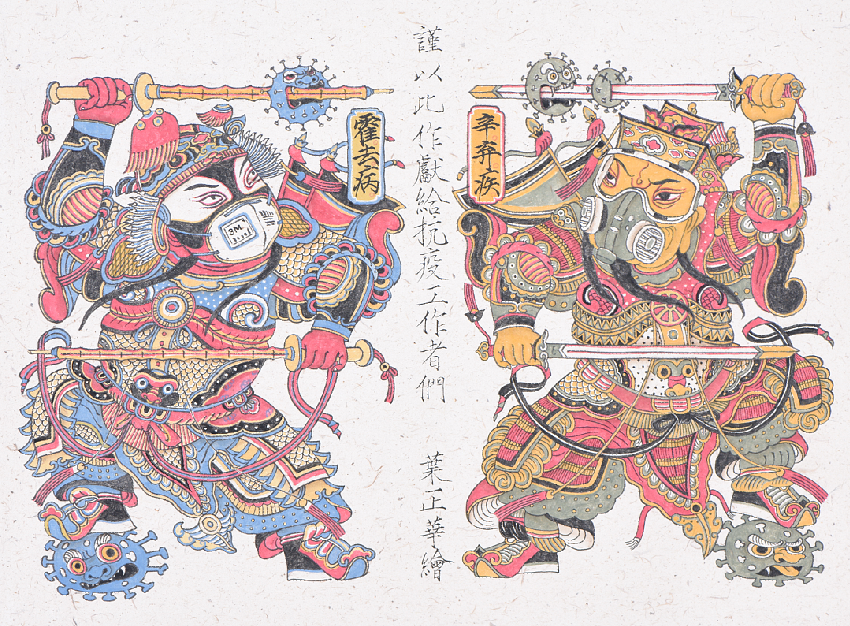 辛弃疾
謹以此作獻給抗疫工作者們
葉正華繪
霍去病
3M